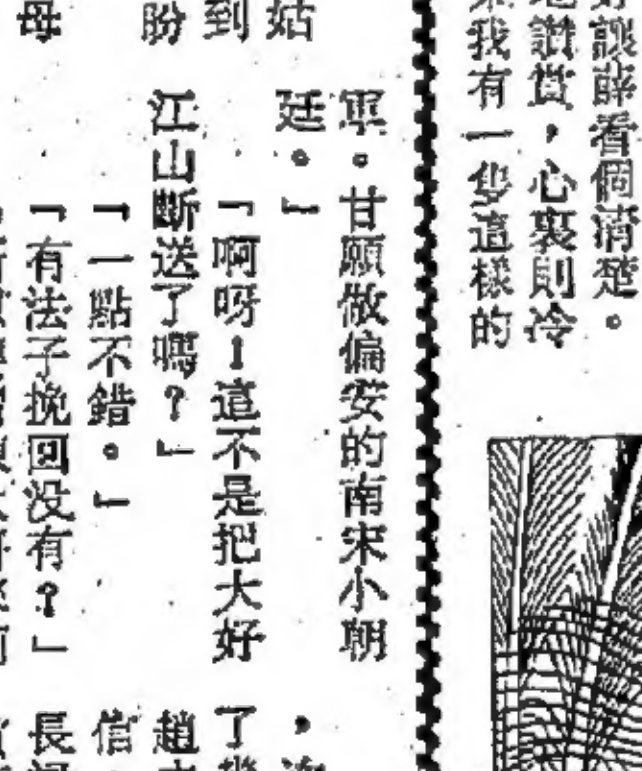 好讓薛看個清楚。
地讚賞，心裏則冷
我有一隻這樣的
軍。甘願做偏安的南宋小朝
廷。」
「啊呀！這不是把大好
江山斷送了嗎？」
「一點不錯。」
「有法子挽回没有？」
姑
到
盼
母
，
了幾
趙
信
長